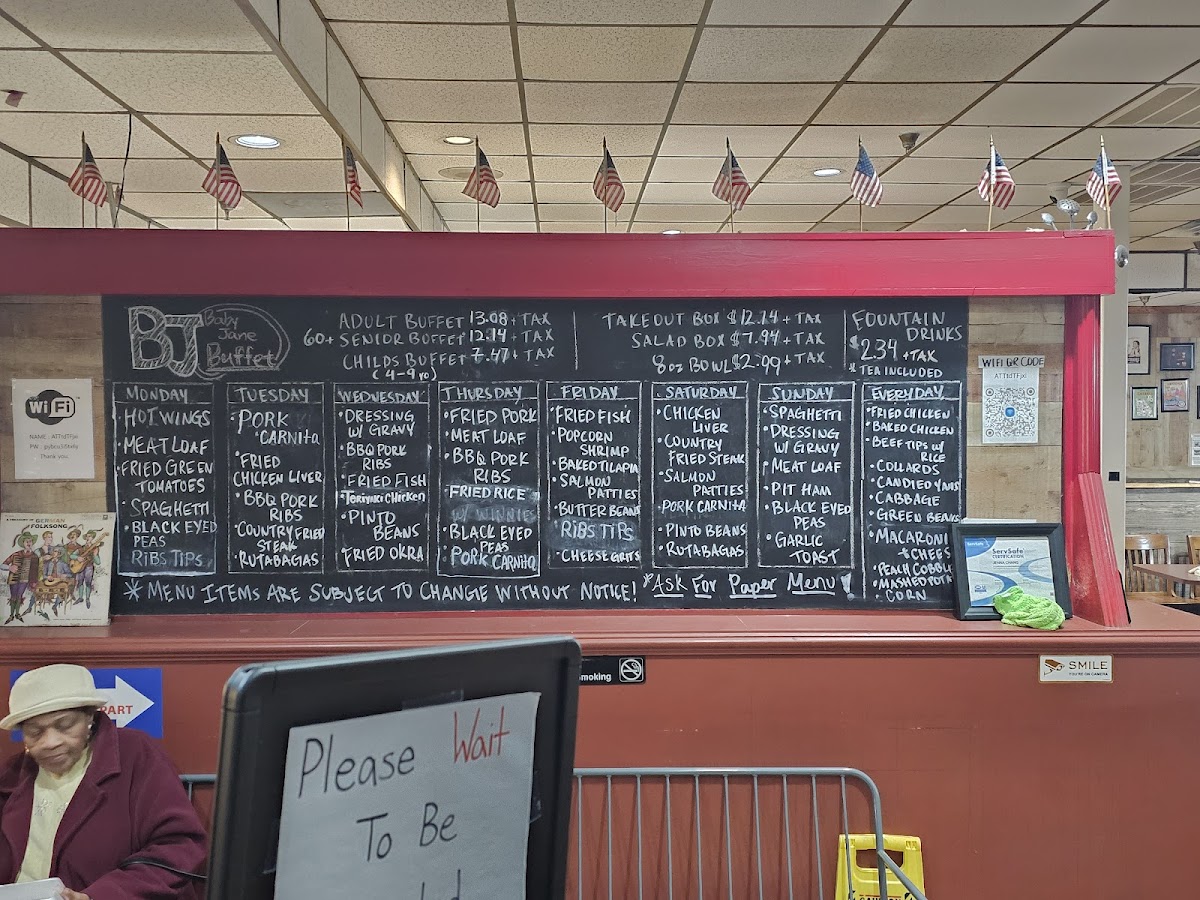 BJ Baby
Jane
Buffet
ADULT BUFFET 13.08 + TAX
60+ SENIOR BUFFET 12.14 + TAX
CHILDS BUFFET 7.47 + TAX
(4-9 YO)
TAKEOUT BOX $12.14 + TAX
SALAD BOX $7.94 + TAX
8oz BOWL $2.99 + TAX
FOUNTAIN
DRINKS
$2.34 + TAX
*TEA INCLUDED
MONDAY
• HOT WINGS
• MEAT LOAF
• FRIED GREEN
TOMATOES
• SPAGHETTI
• BLACK EYED
PEAS
RIBS TIPS
TUESDAY
• PORK
CARNITA
• FRIED
CHICKEN LIVER
• BBQ PORK
RIBS
• COUNTRY FRIED
STEAK
• RUTABAGAS
WEDNESDAY
• DRESSING
W/ GRAVY
• BBQ PORK
RIBS
• FRIED FISH
• TERIYAKI CHICKEN
• PINTO
BEANS
• FRIED OKRA
THURSDAY
• FRIED PORK
• MEAT LOAF
• BBQ PORK
RIBS
FRIED RICE
W/ WINNIES
• BLACK EYED
PEAS
• PORK CARNITA
FRIDAY
• FRIED FISH
• POPCORN
SHRIMP
• BAKED TILAPIA
• SALMON
PATTIES
• BUTTER BEANS
RIBS TIPS
• CHEESE GRITS
SATURDAY
• CHICKEN
LIVER
• COUNTRY
FRIED STEAK
• SALMON
PATTIES
• PORK CARNITA
• PINTO BEANS
• RUTABAGAS
SUNDAY
• SPAGHETTI
• DRESSING
W/ GRAVY
• MEAT LOAF
• PIT HAM
• BLACK EYED
PEAS
• GARLIC
TOAST
EVERYDAY
• FRIED CHICKEN
• BAKED CHICKEN
• BEEF TIPS W/
RICE
• COLLARDS
• CANDIED YAMS
• CABBAGE
• GREEN BEANS
• MACARONI
+ CHEES
• PEACH COBBL
• MASHED POTA
• CORN
* MENU ITEMS ARE SUBJECT TO CHANGE WITHOUT NOTICE! *ASK FOR PAPER MENU!
WiFi
Thank you
A TREASURY OF GERMAN
FOLKSONG
WIFI QR CODE
ServSafe
CERTIFICATION
PART
moking
SMILE
YOU'RE ON CAMERA
Please Wait
To Be